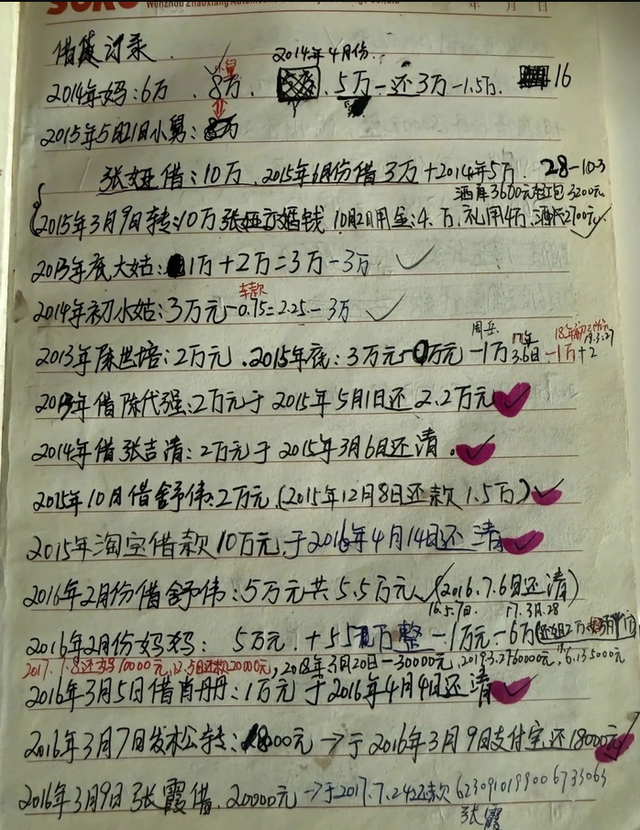 Wenzhou Zhaoxiang Automotive
年 月 日
借贷记录
2014年4月份
2014年妈:6万 8万 5万-还3万-1.5万 16
小舅
2015年5月21日小舅:
张娅借:10万 2015年6月份借3万+2014年5万 28-10
2015年3月9日转:10万张娅 婚钱 10月2日用金:4万 礼用4万 酒
2013年底大姑:1万+2万=3万-3万 ✓
车款
2014年初小姑:3万元-0.75=2.25-3万 ✓
周岳 17年
2013年陈世培:2万元、2015年底:3万元 万元-1万 3.6日-1万+2
年借陈代强:2万元于2015年5月1日还2.2万元 ✓
2014年借张吉清:2万元于2015年3月6日还清. ✓
2015年10月借舒伟:2万元(2015年12月8日还款1.5万) ✓
2015年淘宝借款10万元于2016年4月14日还清 ✓
2016年2月份借舒伟:5万元共5.5万元(2016.7.6日还清)
16.5.7日. 17.3月.28
2016年2月份妈妈: 5万元+5 万整-1万元-6万
2017.7.8还妈10000元,12.5日还款20000元,2018年3月20日-30000元,2019.3.27 60000元,
2016年3月5日借肖丹丹:1万元于2016年4月4日还清 ✓
2016年3月7日发松公转: 8000元→于2016年3月9日支付宝还18000元 ✓
2016年3月9日张霞借 20000元→于2017.7.24还款 6230910199006733063
张霞